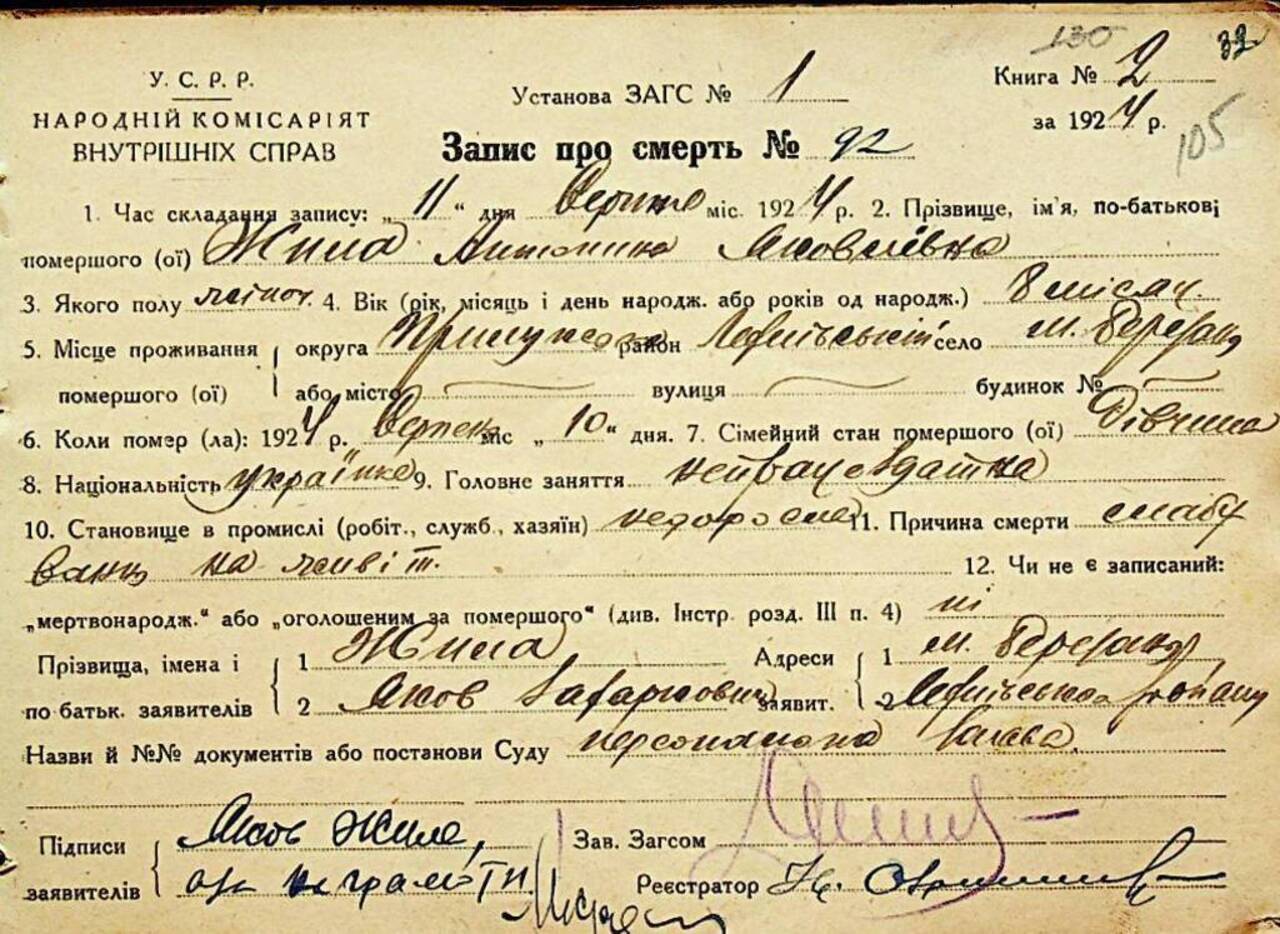 130 32
У. С. Р. Р.
НАРОДНІЙ КОМІСАРІЯТ
ВНУТРІШНІХ СПРАВ
Установа ЗАГС № 1
Книга № 2
за 1924 р.
105
Запис про смерть № 92
1. Час складання запису: „ 11 “ дня Серпня міс. 1924 р. 2. Прізвище, ім'я, по-батькові
помершого (ої) Жила Антонина Яковлівна
3. Якого полу жіноч. 4. Вік (рік, місяць і день народж. або років од народж.) 8 місяч.
5. Місце проживання помершого (ої) округа Прилуцька район село м. Березань
або місто — вулиця — будинок № —
6. Коли помер (ла): 1924 р. Серпень міс „ 10 “ дня. 7. Сімейний стан помершого (ої) Дівчина
8. Національність українка 9. Головне заняття
10. Становище в промислі (робіт., служб., хазяїн) 11. Причина смерти слабу
вання на живіт.
12. Чи не є записаний:
„мертвонародж.“ або „оголошеним за помершого“ (див. Інстр. розд. III п. 4) ні
Прізвища, імена і по батьк. заявителів 1 Жила Адреси заявит. 1 м. Березань
2 Яков Захаркович 2 району
Назви й №№ документів або постанови Суду персональна заява.
Підписи заявителів Яков Жила, Зав. Загсом
неграмотн. Реєстратор